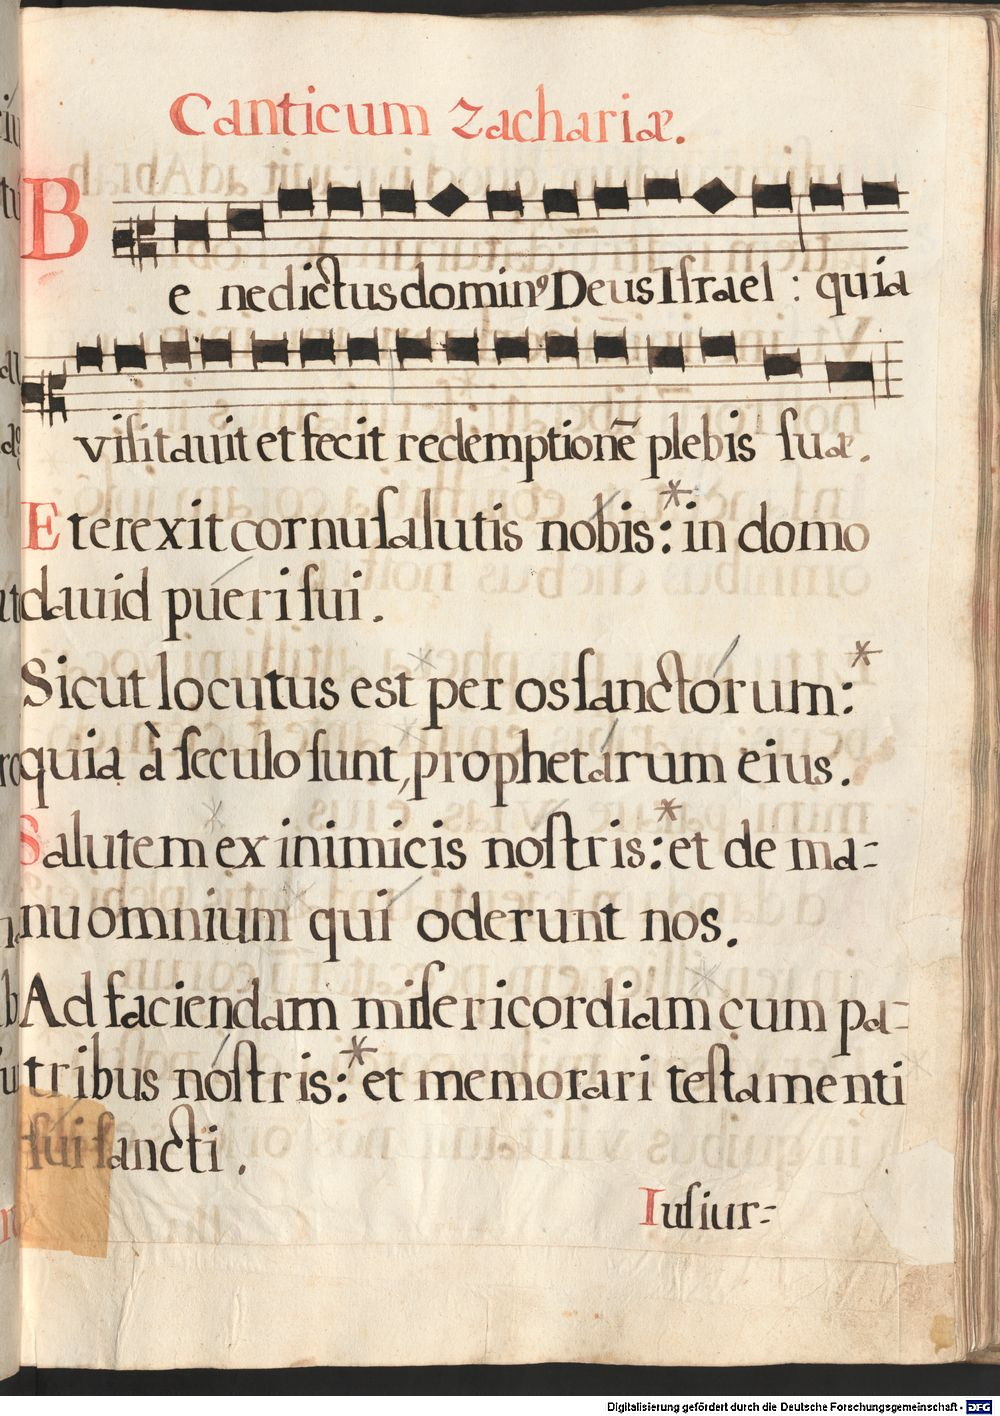 Canticum Zachariæ.
Be nedictus dominꝰ Deus Iſrael : quia
viſitauit et fecit redemptionē plebis ſuæ.
Et erexit cornu ſalutis nobis:* in domo
dauid pueri ſui.
Sicut locutus est per os ſanctorum:*
quia à ſeculo ſunt, prophetarum eius.
Salutem ex inimicis noſtris:* et de ma=
nu omnium qui oderunt nos.
Ad faciendam miſericordiam cum pa=
tribus noſtris:* et memorari teſtamenti
ſui ſancti.
Iuſiur=
Digitalisierung gefördert durch die Deutsche Forschungsgemeinschaft - DFG